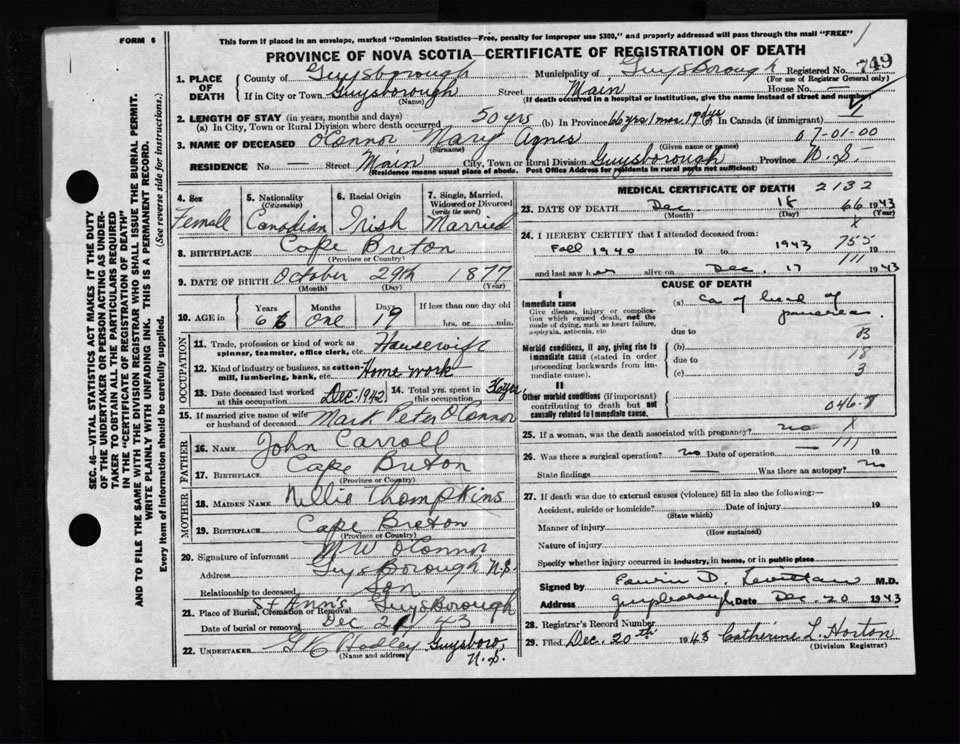 FORM 6
This form if placed in an envelope, marked "Dominion Statistics—Free, penalty for improper use $300," and properly addressed will pass through the mail "FREE"
PROVINCE OF NOVA SCOTIA—CERTIFICATE OF REGISTRATION OF DEATH
1. PLACE OF DEATH
County of Guysborough Municipality of GuysBorough Registered No. 749
(For use of Registrar General only)
If in City or Town Guysborough Street Main House No. —
(Name) (If death occurred in a hospital or institution, give the name instead of street and number)
2. LENGTH OF STAY (in years, months and days)
(a) In City, Town or Rural Division where death occurred 50 yrs (b) In Province 66 yrs 1 mos. 19 dys (c) In Canada (if immigrant)
07-01-00
3. NAME OF DECEASED O'Connor Mary Agnes
(Surname) (Given name or names)
RESIDENCE No. — Street Main City, Town or Rural Division Guysborough Province N.S.
(Residence means usual place of abode. Post Office Address for residents in rural parts not sufficient)
4. Sex Female
5. Nationality (Citizenship) Canadian
6. Racial Origin Irish
7. Single, Married, Widowed or Divorced (write the word) Married
8. BIRTHPLACE Cape Breton
(Province or Country)
9. DATE OF BIRTH October 29th 1877
(Month) (Day) (Year)
10. AGE in Years Months Days If less than one day old
66 One 19 hrs. or min.
OCCUPATION
11. Trade, profession or kind of work as spinner, teamster, office clerk, etc. Housewife
12. Kind of industry or business, as cotton-mill, lumbering, bank, etc. Home work
13. Date deceased last worked at this occupation Dec. 1942
14. Total yrs. spent in this occupation
15. If married give name of wife or husband of deceased Mark Peter O'Connor
FATHER
16. NAME John Carroll
17. BIRTHPLACE Cape Breton
(Province or Country)
MOTHER
18. MAIDEN NAME Nellie Thompkins
19. BIRTHPLACE Cape Breton
(Province or Country)
20. Signature of informant M W O'Connor
Address GuysBorough N.S.
Relationship to deceased Son
21. Place of Burial, Cremation or Removal St Ann's GuysBorough
Date of burial or removal Dec 21/43
22. UNDERTAKER Guysboro, N.S.
(Name and address)
MEDICAL CERTIFICATE OF DEATH 2132
23. DATE OF DEATH Dec 18 66 1943
(Month) (Day) (Year)
X
24. I HEREBY CERTIFY that I attended deceased from:
Fall 1940 19 to 1943 19
755
111
and last saw her alive on Dec. 17 1943
CAUSE OF DEATH
I
Immediate cause
Give disease, injury or complication which caused death, not the mode of dying, such as heart failure, asphyxia, asthenia, etc.
(a) Ca of head of pancreas.
due to B
Morbid conditions, if any, giving rise to immediate cause (stated in order proceeding backwards from immediate cause).
(b) 18
due to
(c) 3
II
Other morbid conditions (if important) contributing to death but not causally related to immediate cause.
046-7
25. If a woman, was the death associated with pregnancy? no X
111
26. Was there a surgical operation? no Date of operation — 19
State findings — Was there an autopsy? no
27. If death was due to external causes (violence) fill in also the following:—
Accident, suicide or homicide? Date of injury 19
(State which)
Manner of injury
(How sustained)
Nature of injury
Specify whether injury occurred in industry, in home, or in public place
Signed by M.D.
Address Guysborough Date Dec. 20 1943
28. Registrar's Record Number
29. Filed Dec. 20th 1943 Catherine L. Horton
(Division Registrar)
SEC. 46—VITAL STATISTICS ACT MAKES IT THE DUTY
OF THE UNDERTAKER OR PERSON ACTING AS UNDER-
TAKER TO OBTAIN ALL THE PARTICULARS REQUIRED
IN THE "CERTIFICATE OF REGISTRATION OF DEATH"
AND TO FILE THE SAME WITH THE DIVISION REGISTRAR WHO SHALL ISSUE THE BURIAL PERMIT.
WRITE PLAINLY WITH UNFADING INK. THIS IS A PERMANENT RECORD.
Every item of information should be carefully supplied. (See reverse side for instructions.)